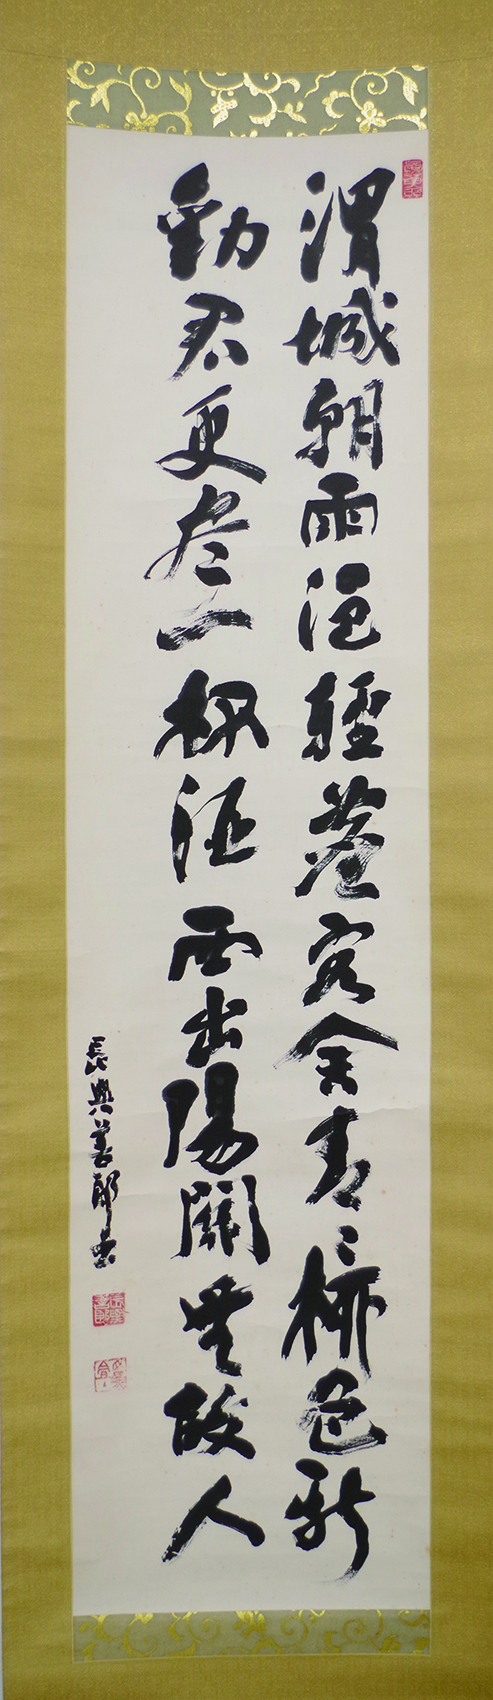 渭城朝雨浥輕塵客舍青〻柳色新
勸君更尽一杯酒西出陽關無故人
長與善郎書